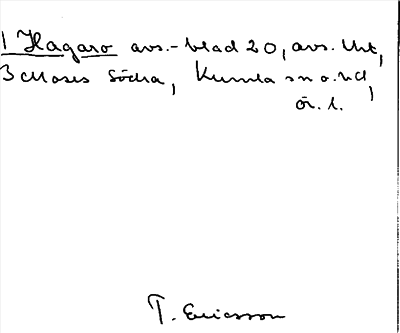 1 Hagaro avs.-blad 20, avs.
Södra, Kumla sn o. hd,
ör. l.
T. Ericsson